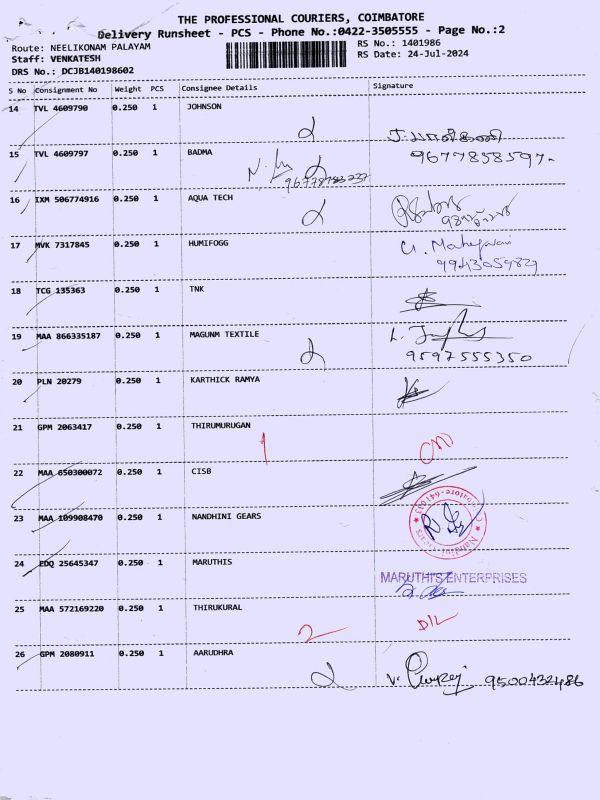 THE PROFESSIONAL COURIERS, COIMBATORE
Delivery Runsheet - PCS - Phone No.:0422-3505555 - Page No.:2
Route: NEELIKONAM PALAYAM
RS No.: 1401986
Staff: VENKATESH
RS Date: 24-Jul-2024
DRS No.: DCJB140198602
S No Consignment No Weight PCS Consignee Details Signature
14 TVL 4609790 0.250 1 JOHNSON
9677858597
15 TVL 4609797 0.250 1 BADMA
16 IXM 506774916 0.250 1 AQUA TECH
17 MVK 7317845 0.250 1 HUMIFOGG
18 TCG 135363 0.250 1 TNK
19 MAA 866335187 0.250 1 MAGUNM TEXTILE
9597555350
20 PLN 20279 0.250 1 KARTHICK RAMYA
21 GPM 2063417 0.250 1 THIRUMURUGAN
1
22 MAA 650300072 0.250 1 CISB
23 MAA 109908470 0.250 1 NANDHINI GEARS
24 EDQ 25645347 0.250 1 MARUTHIS
MARUTHI'S ENTERPRISES
25 MAA 572169220 0.250 1 THIRUKURAL
2 D/L
26 GPM 2080911 0.250 1 AARUDHRA
9500432486